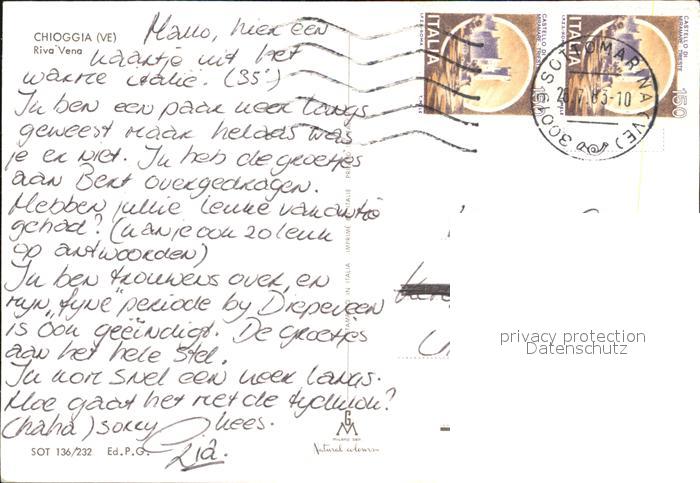 CHIOGGIA (VE)
Riva Vena
Hallo, hier een
kaartje uit het
warme italië. (35°)
Ik ben een paar keer langs
geweest maar helaas was
je er niet. Ik heb de groetjes
aan Bert overgedragen.
Hebben jullie leuke vakantie
gehad? (kan je ook zo leuk
op antwoorden)
Ik ben trouwens over, en
mijn "fijne" periode by Diepeveen
is óók geëindigt. De groetjes
aan het hele stel.
Ik kom snel een keer langs.
Hoe gaat het met de
(haha) sorry Kees.
Ria.
SOT 136/232 Ed. P. G.
MILANO
Natural colours
STAMPATO IN ITALIA IMPRIMÉ EN ITALIE
ITALIA
CASTELLO DI
MIRAMARE TRIESTE
150
ITALIA
CASTELLO DI
MIRAMARE TRIESTE
150
SOTTOMARINA (VE)
privacy protection
Datenschutz